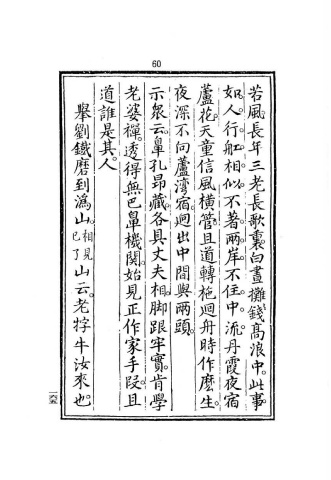 60
若風。長年三老長歌裏白晝攤錢高浪中。此事
如人行舡相似。不著兩岸。不住中流。丹霞夜宿
蘆花。天童信風橫管。且道轉柂迴舟時作麼生。
夜深不向蘆灣宿。迥出中間與兩頭。
示衆云。鼻孔昂藏各具丈夫相。脚跟牢實。肯學
老婆禪。透得無巴鼻機關。始見正作家手段。且
道誰是其人。
舉劉鐵磨到溈山。相見已了山云。老牸牛汝來也。